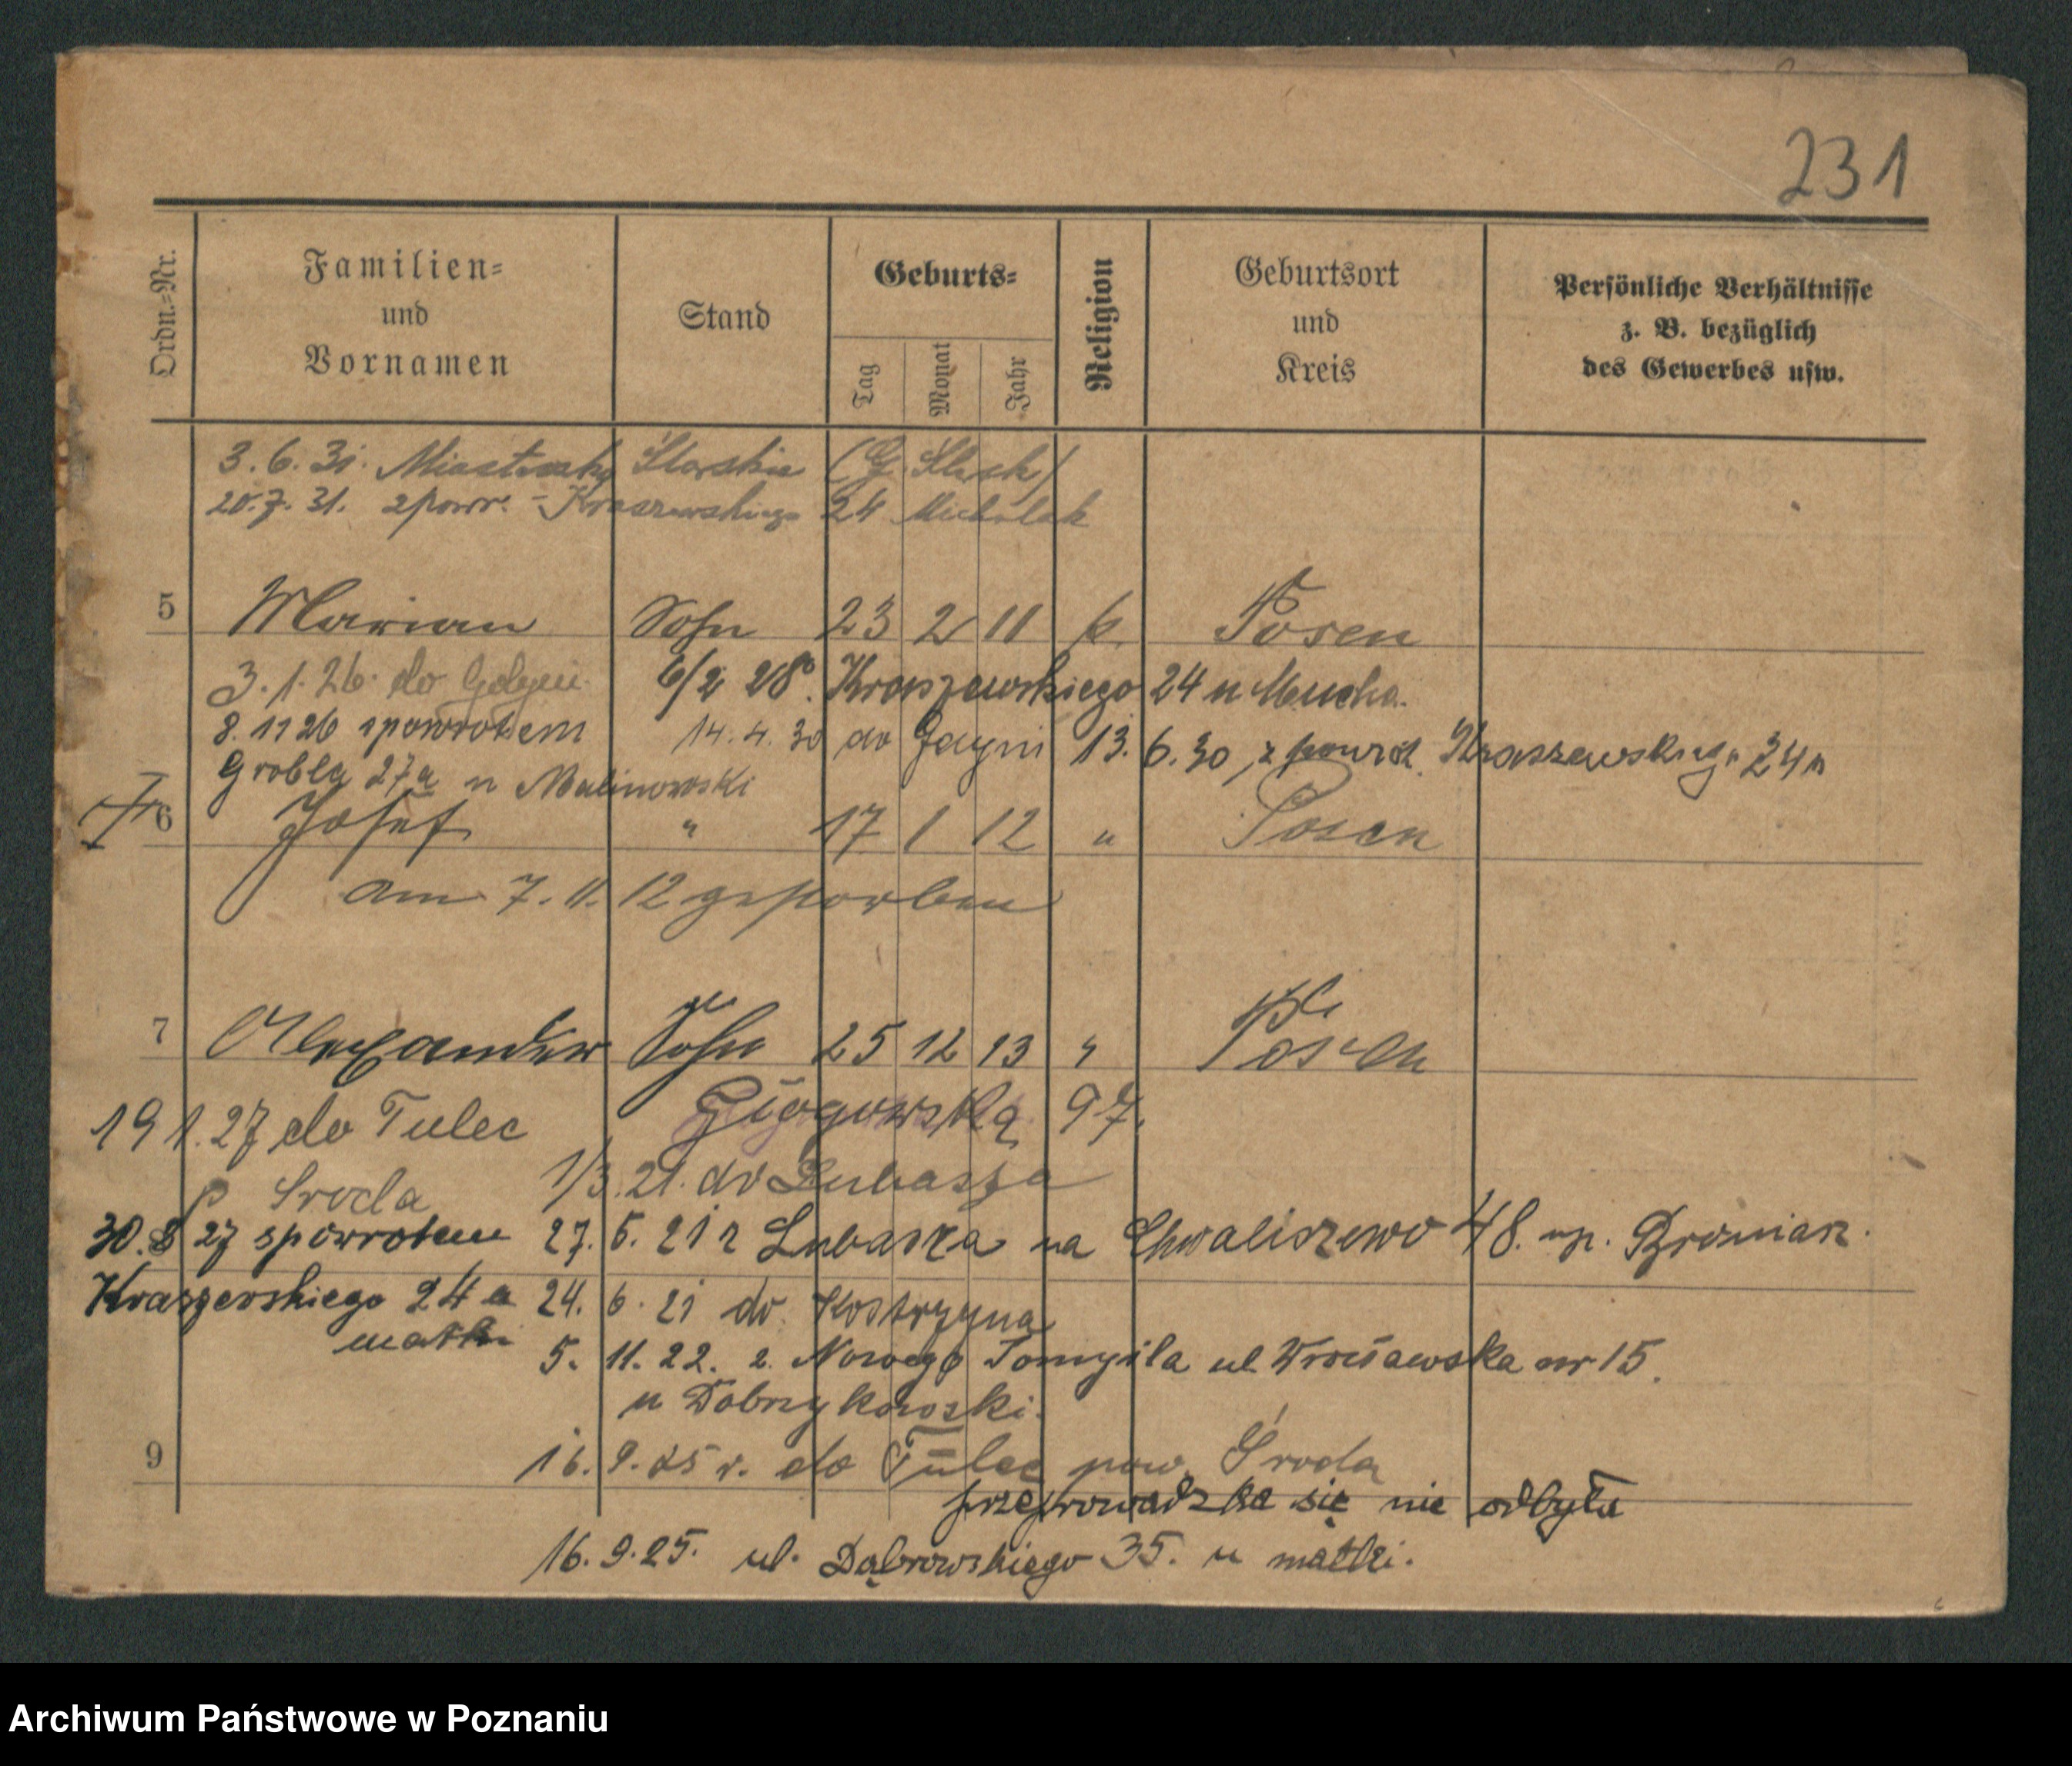 231
Ordn.=Nr.
Familien= und Vornamen
Stand
Geburts=
Tag
Monat
Jahr
Religion
Geburtsort und Kreis
Persönliche Verhältnisse z. B. bezüglich des Gewerbes usw.
3. 6. 31. Miasteczko Śląskie (G. Śląsk)
20. 7. 31. zpowr. - Kraszewskiego 24 Michalak
5 Marian Sohn 23 2 11 k. Posen
3. 1. 26. do Gdyni 6/2 28. Kraszewskiego 24 u Mucha.
8. 11 26 spowrotem 14. 4. 30 do Gdyni 13. 6. 30, z powrot. Kraszewskiego 24
Grobla 27a u Malinowski
6 Josef " 17 1 12 " Posen
am 7. 11. 12 gestorben
7 Alexander Sohn 25 12 13 " Posen
19 1. 27 do Tulec Głogowska 97.
p Środa 1/3. 21. do Lubasza
30. 8 27 spowrotem 27. 5. 21 z Lubasza na Chwaliszewo 48. np.
Kraszewskiego 24 a 24. 6. 21 do Kostrzyna
matki 5. 11. 22. z Nowego Tomyśla ul Wrocławska nr 15.
u Dobrzykowski.
9 16. 9. 25 r. do Tulec pow. Środa
przeprowadzka się nie odbyła
16. 9. 25. ul. Dąbrowskiego 35. u matki.
Archiwum Państwowe w Poznaniu